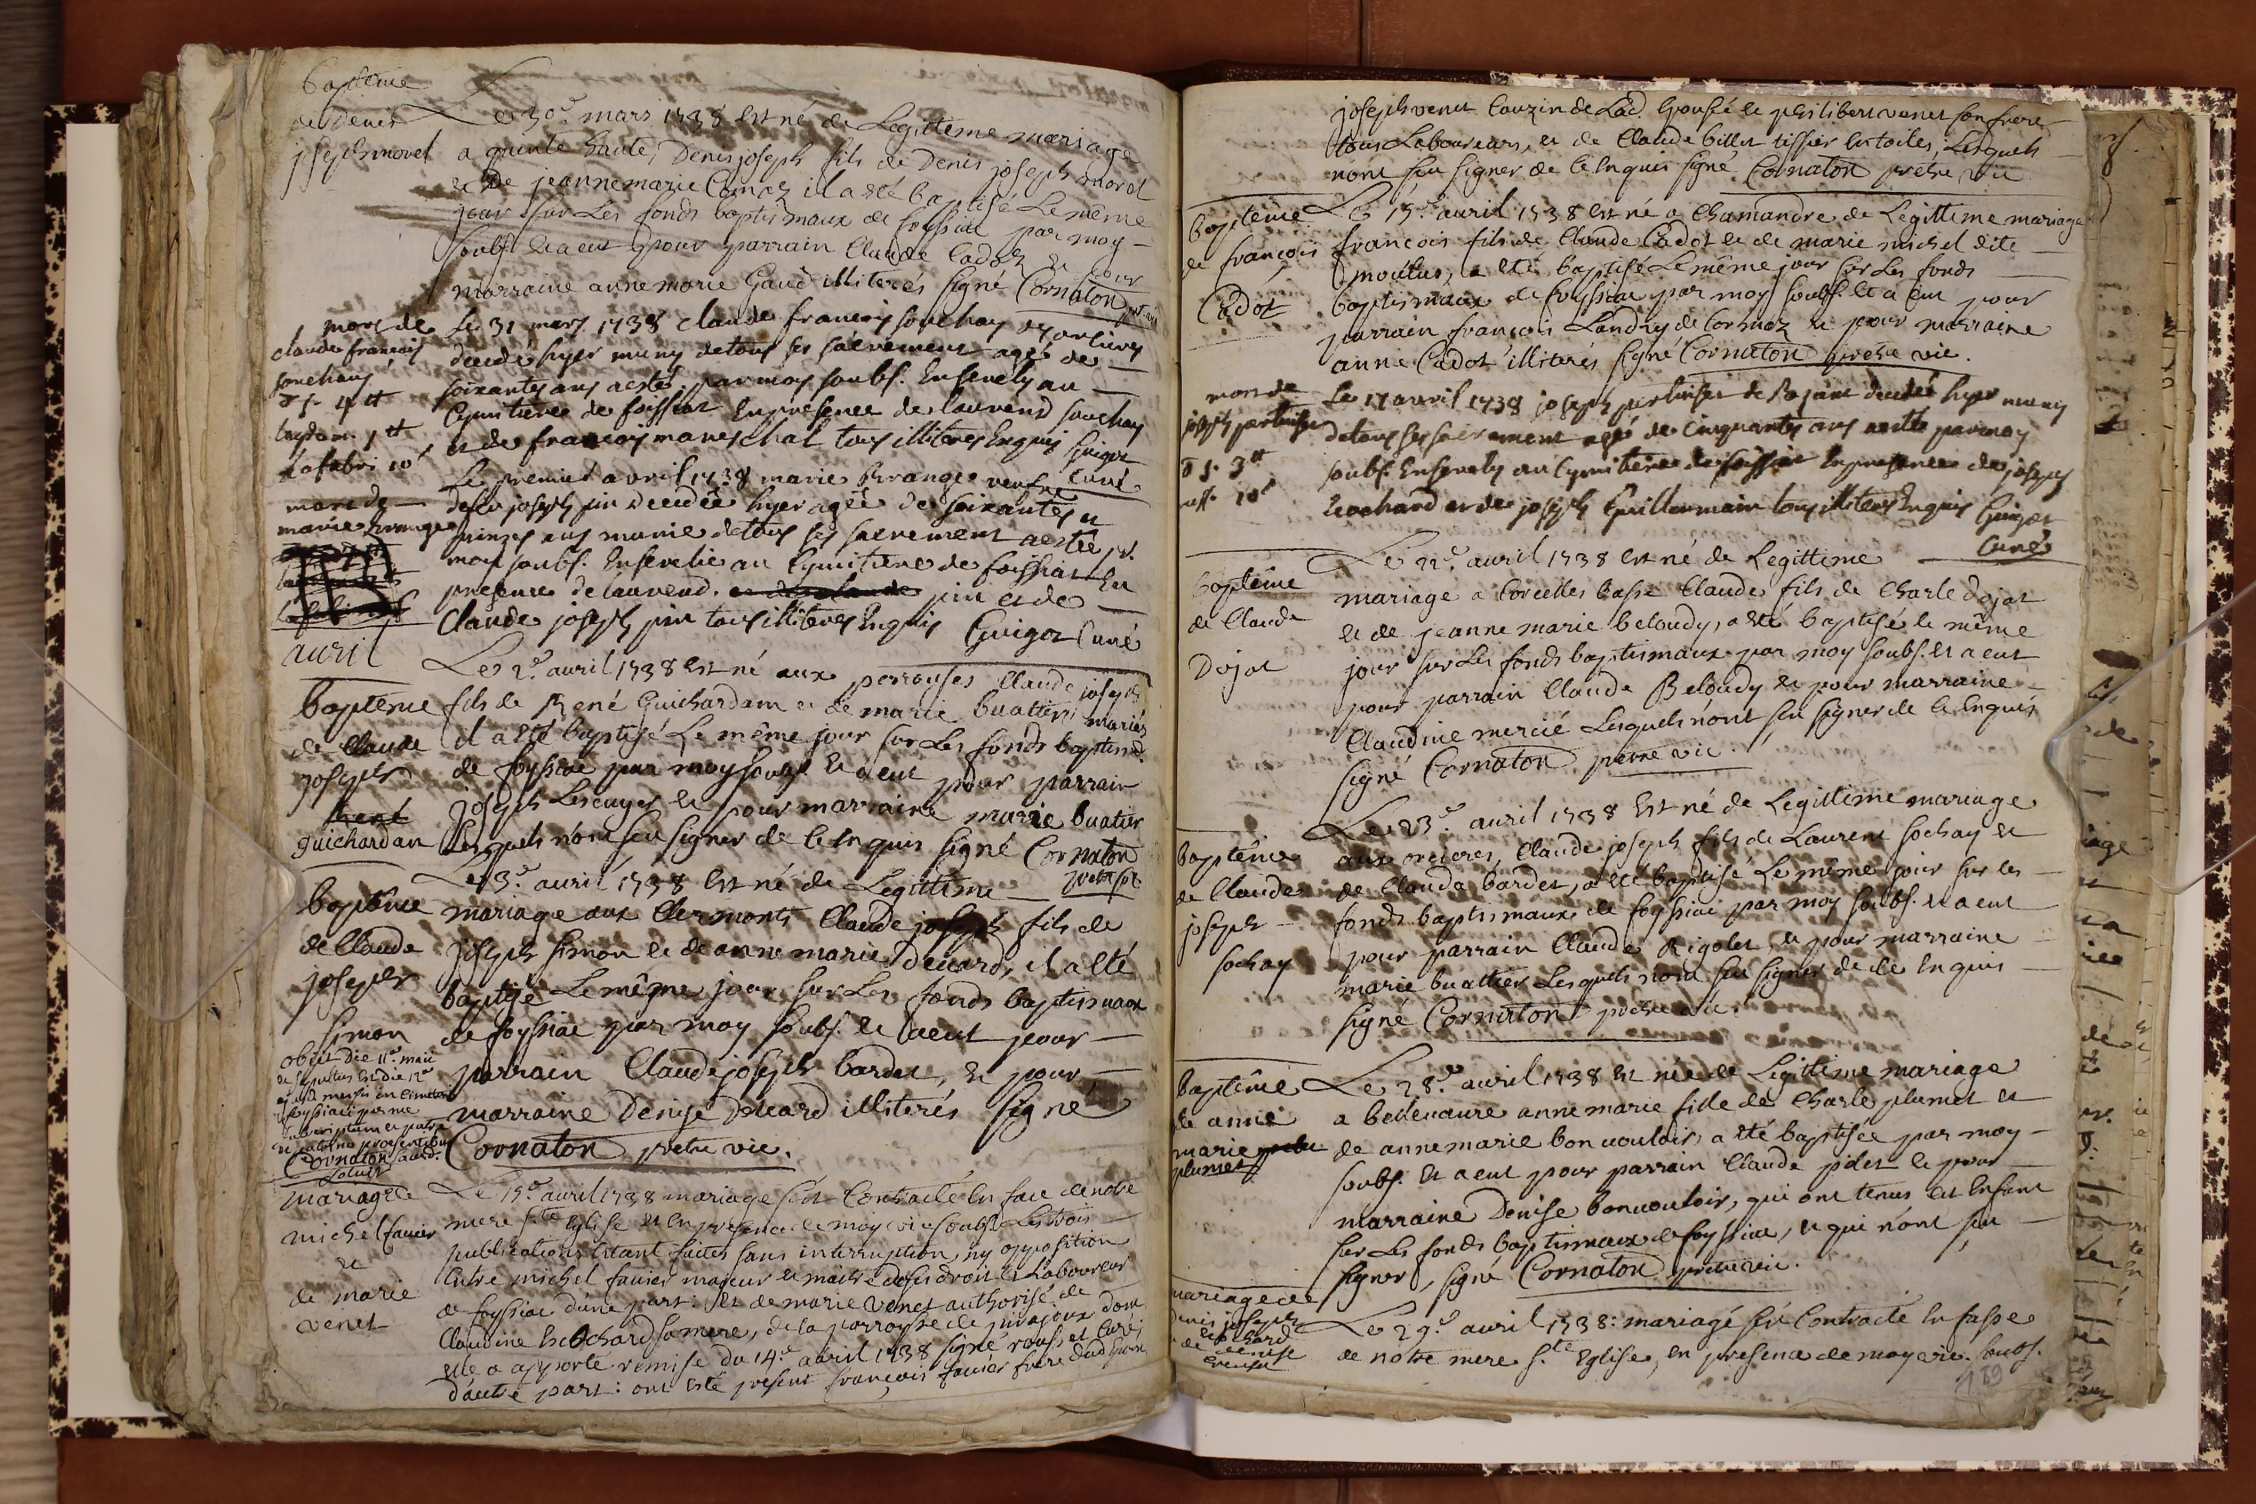 baptême
de Denis
joseph morel
Le 30e mars 1738 est né de Legitteme mariage
a pointe haute, Denis joseph fils de Denis joseph morel
et De jeanne marie il a été baptisé Le même
jour sur Les fonds baptismaux de foyssiat par moy
soubs. et a eut pour parrain Claude Cadot et pour
marraine anne marie Gaud illiterés signé Cornaton
mort de
claude francois
souchay
Le 31 mars 1738 claude francois souchay
decedé hyer muny de tous ses sacrement agé de
soixantes ans aesté par moy soubs. Ensevely au
Cymitiere de foissiat En presence de laurend souchay
et de francois mareschal tous illiteres Enquis Guigot
curé
mort de
marie
Le premier avril 1738 marie Brange veufve
defeu joseph pin decedée hyer agée de soixantes et
quinzes ans munie de tous ses sacrement aestée p.
moy soubs. Ensevelie au Cymitiere de foissiat En
presence de laurend. pin et de
Claude joseph pin tous illiteres Enquis Guigot Curé
auril
baptême
de Claude
joseph
guichardan
Le 2e auril 1738 est né aux perrouses Claude joseph
fils de René Guichardan et de marie buattier mariés
il a été baptisé Le même jour sur Les fonds baptism.
de foyssiat par moy soubs. et a eut pour parrain
joseph Lescuyer et pour marraine marie buatier
Lesquels n'ont sçu signer de ce Enquis signé Cornaton
baptême
de Claude
joseph
Simon
Le 3e auril 1738 est né de Legittime
mariage aux Clermonts Claude joseph fils de
joseph simon et de anne marie Decard, il a été
baptisé Le même jour sur Les fonds baptismaux
de foyssiat par moy soubs. et a eut pour
parrain Claude joseph bardet, et pour
marraine Denise Decard illiterés signé
Cornaton pretre vic.
obiit die 11a maii
et sepultus est die 12a
Cornaton
mariage de
michel fauier
et
de marie
venet
Le 15e auril 1738 mariage fut Contracté En face de notre
mere ste Eglise et En presence de moy vic. soubs. Les trois
publications étant faites sans interruption ny opposition
Entre michel fauier majeur et maitre de ses droits Laboureur
de foyssiat d'une part: et de marie venet authorisé de
Claudine Eschochard sa mere, de la parroysse de jurajoux dont
elle a apporté remise du 14e auril 1738 signé curé
d'autre part: ont esté present francois fauier frere dud epoux
joseph venet Couzin de Lad. Epousée et philibert venet son frere
tous Laboureurs, et de Claude billet tissier En toiles, Lesquels
n'ont sçu signer de ce Enquis signé Cornaton pretre vic
baptême
de francois
Cadot
Le 15e auril 1738 est né a Chamandre de Legittime mariage
francois fils de Claude Cadot et de marie michel dite
moulus, a été baptisé Le même jour sur Les fonds
baptismaux de foyssiat par moy soubs. et a eut pour
parrain francois Landry de Cormoz et pour marraine
anne Cadot illiterés signé Cornaton pretre vic.
mort de
joseph
Le 17 avril 1738 joseph decedé hyer muny
de tous ses sacrement agé de Cinquantes ans aesté par moy
soubs. Ensevely au Cymitiere de foissiat En presence de joseph
Cochard et de joseph Guillermain tous illiteres Enquis Guigot
Curé
baptême
de Claude
Dojat
Le 22e auril 1738 est né de Legittime
mariage a Corcelles basse Claude fils de Charle Dojat
et de jeanne marie beloudy, a été baptisé le même
jour sur Les fonds baptismaux par moy soubs. et a eut
pour parrain Claude Beloudy et pour marraine
Claudine mercié Lesquels n'ont sçu signer de ce Enquis
signé Cornaton pretre vic.
baptême
de Claude
joseph
sochay
Le 23e auril 1738 Est né de Legittime mariage
aux orcieres, Claude joseph fils de Laurent sochay et
de Clauda bardet, a été baptisé Le même jour sur les
fonds baptismaux de foyssiat par moy soubs. et a eut
pour parrain Claude Rigolet, et pour marraine
marie buattier Lesquels n'ont sçu signer de ce Enquis
signé Cornaton pretre vic.
baptême
de anne
marie
plumet
Le 28e auril 1738 est née de Legittime mariage
a bellevaure anne marie fille de Charle plumet et
de anne marie bonvouloir, a été baptisée par moy
soubs. et a eut pour parrain Claude pobet et pour
marraine Denise bonvouloir, qui ont tenus cet Enfant
sur Les fonds baptismaux de foyssiat, et qui n'ont sçu
signer, signé Cornaton pretre vic.
mariage de
denis joseph
Le 29e auril 1738: mariage fut Contracté En fasse
de notre mere ste Eglise, en presence de moy vic. soubs.